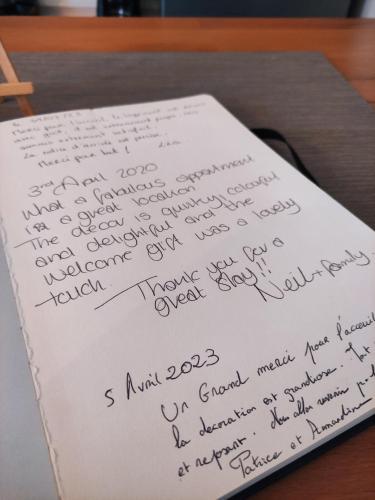 Merci pour l'accueil, le logement est
avec goût, il est extrêmement propre,
sommes extrêmement satisfait.
La notice d'arrivée est précise.
Merci pour tout ! Léa
3rd April 2020
What a fabulous appartment
in a great location
The decor is quirky, colourful
and delightful and the
welcome gift was a lovely
touch.
Thank you for a
great stay!!
Neil + family.
5 Avril 2023
Un Grand merci pour l'acceuil
la decoration est grandiose. Tout
et reposant. Nous allons revenir
Patrice et Amandine